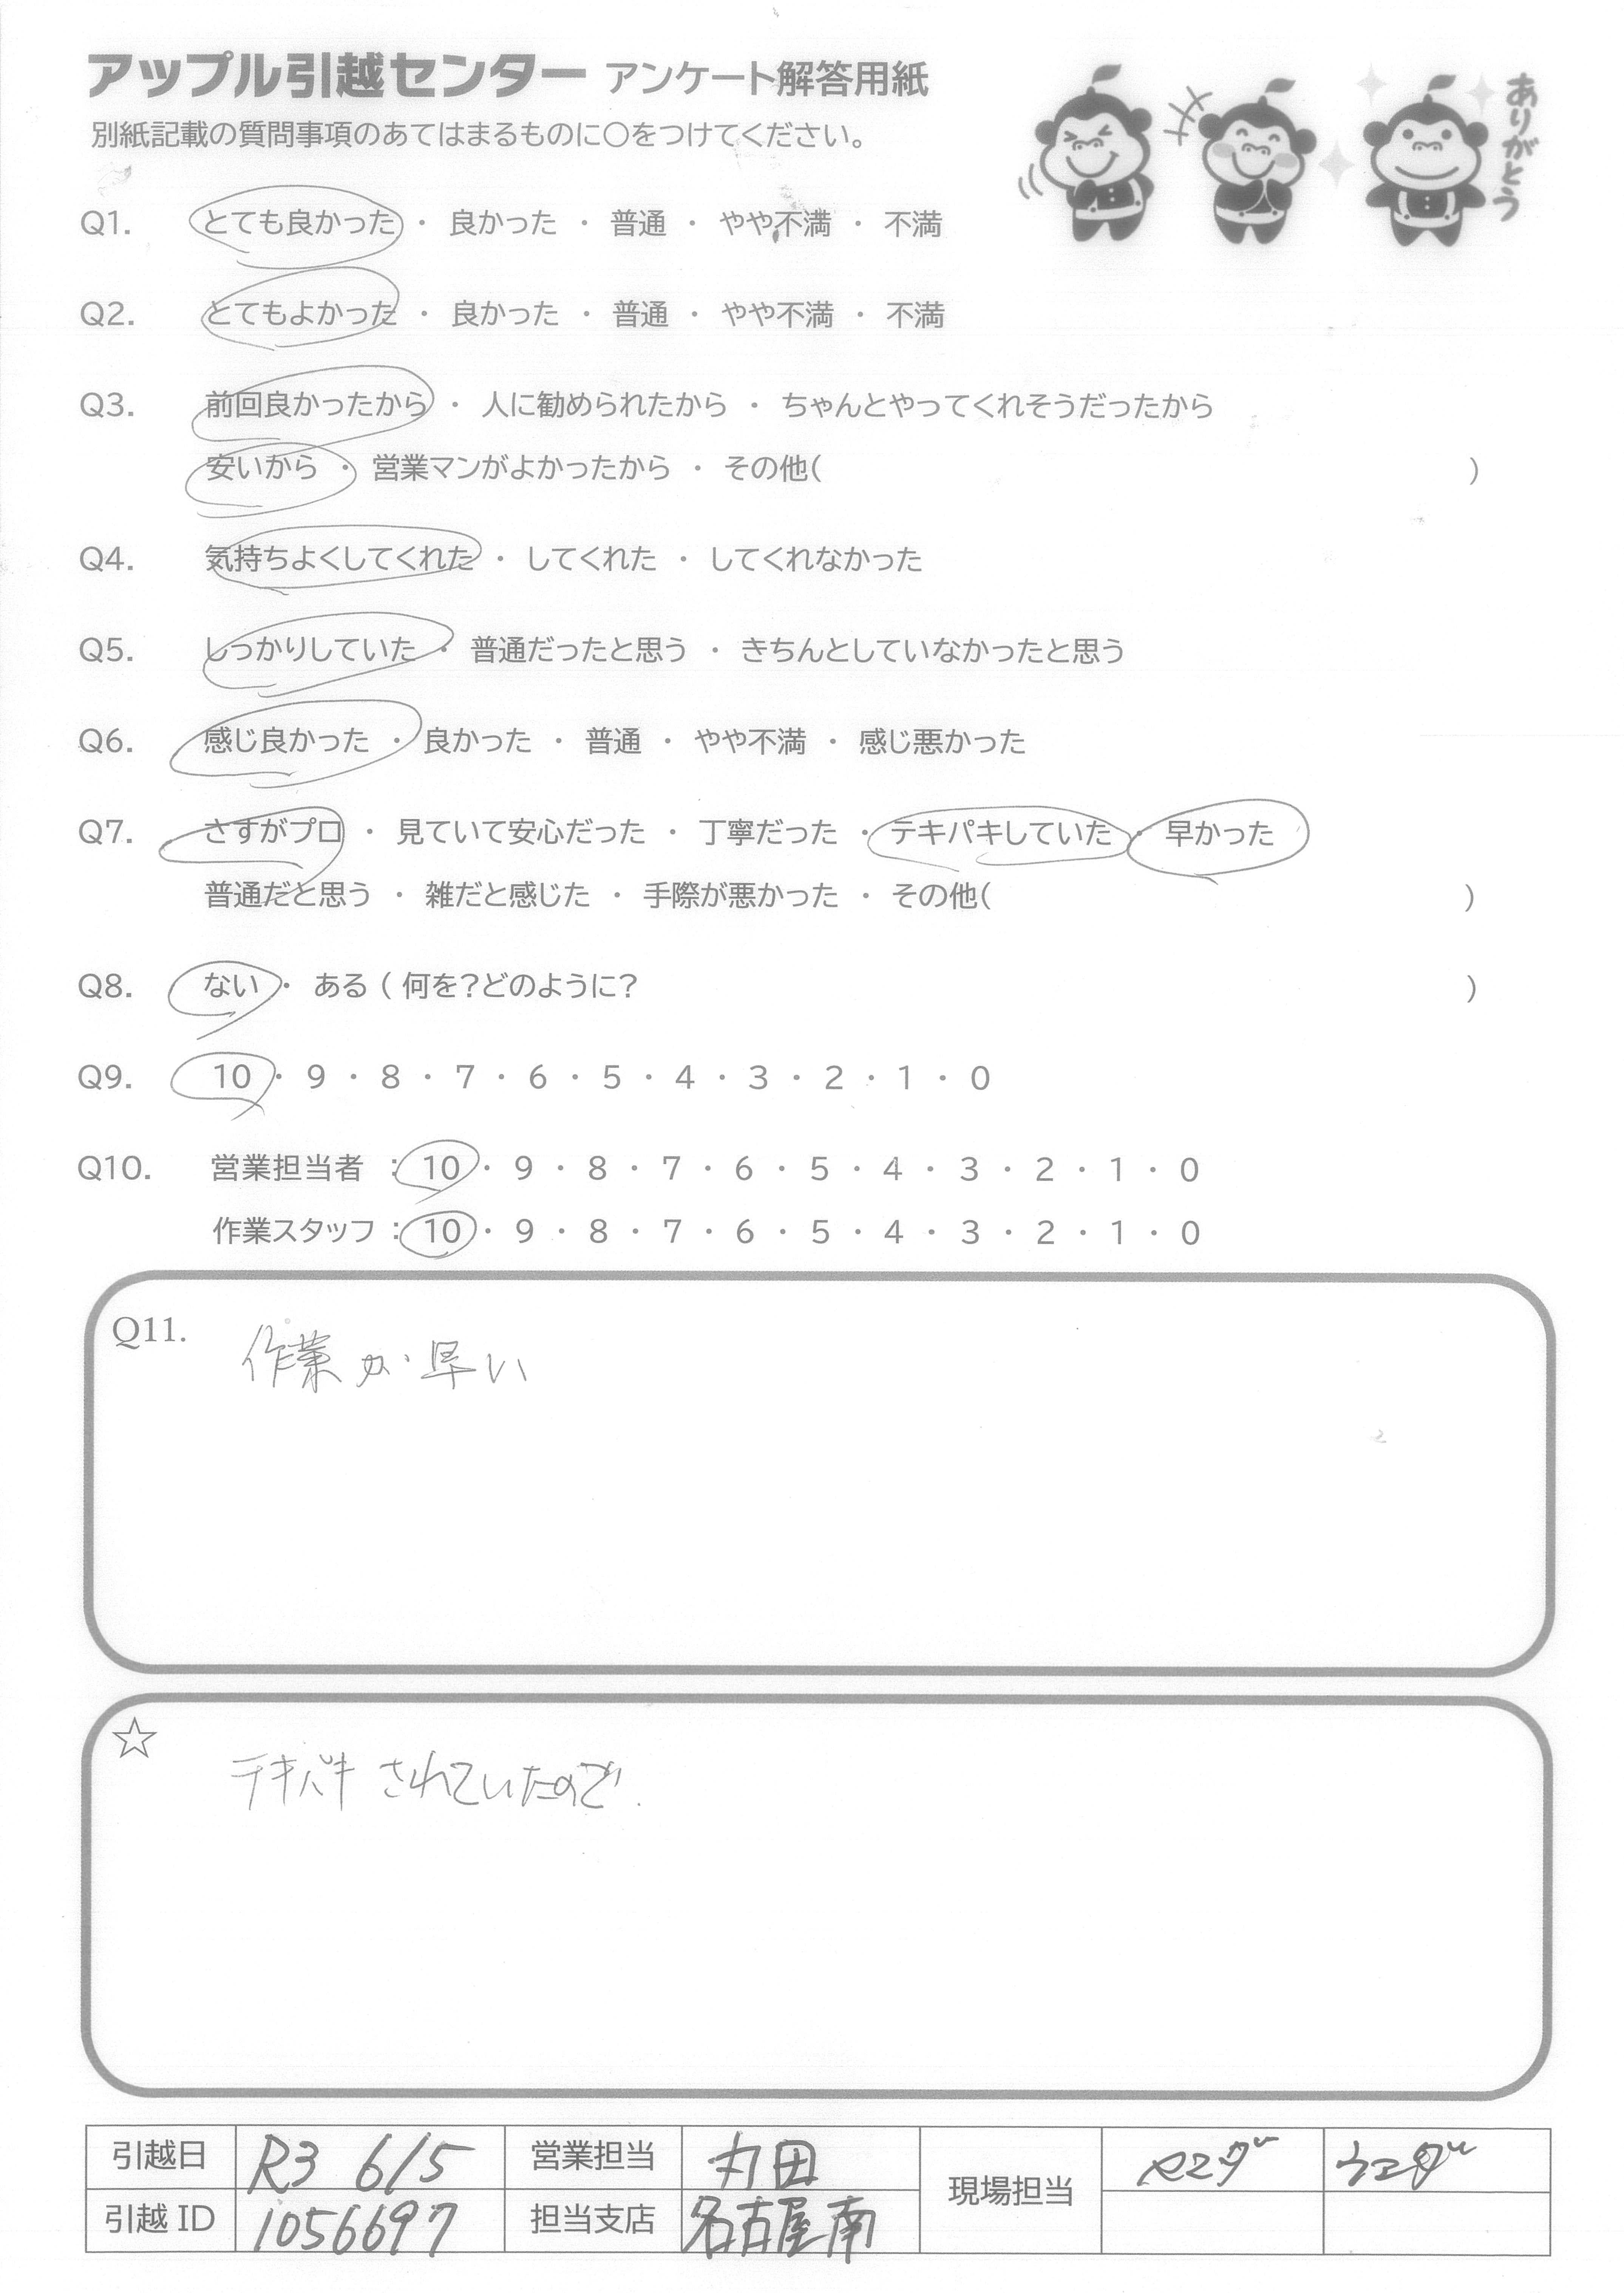 アップル引越センター アンケート解答用紙
別紙記載の質問事項のあてはまるものに〇をつけてください。
ありがとう
Q1. とても良かった ・ 良かった ・ 普通 ・ やや不満 ・ 不満
Q2. とてもよかった ・ 良かった ・ 普通 ・ やや不満 ・ 不満
Q3. 前回良かったから ・ 人に勧められたから ・ ちゃんとやってくれそうだったから
安いから ・ 営業マンがよかったから ・ その他( )
Q4. 気持ちよくしてくれた ・ してくれた ・ してくれなかった
Q5. しっかりしていた ・ 普通だったと思う ・ きちんとしていなかったと思う
Q6. 感じ良かった ・ 良かった ・ 普通 ・ やや不満 ・ 感じ悪かった
Q7. さすがプロ ・ 見ていて安心だった ・ 丁寧だった ・ テキパキしていた ・ 早かった
普通だと思う ・ 雑だと感じた ・ 手際が悪かった ・ その他( )
Q8. ない ・ ある ( 何を?どのように? )
Q9. 10 ・ 9 ・ 8 ・ 7 ・ 6 ・ 5 ・ 4 ・ 3 ・ 2 ・ 1 ・ 0
Q10. 営業担当者 : 10 ・ 9 ・ 8 ・ 7 ・ 6 ・ 5 ・ 4 ・ 3 ・ 2 ・ 1 ・ 0
作業スタッフ : 10 ・ 9 ・ 8 ・ 7 ・ 6 ・ 5 ・ 4 ・ 3 ・ 2 ・ 1 ・ 0
Q11. 作業が早い
☆ テキパキされていたので.
引越日 R3 6/5 営業担当 現場担当
引越 ID 1056697 担当支店 名古屋南